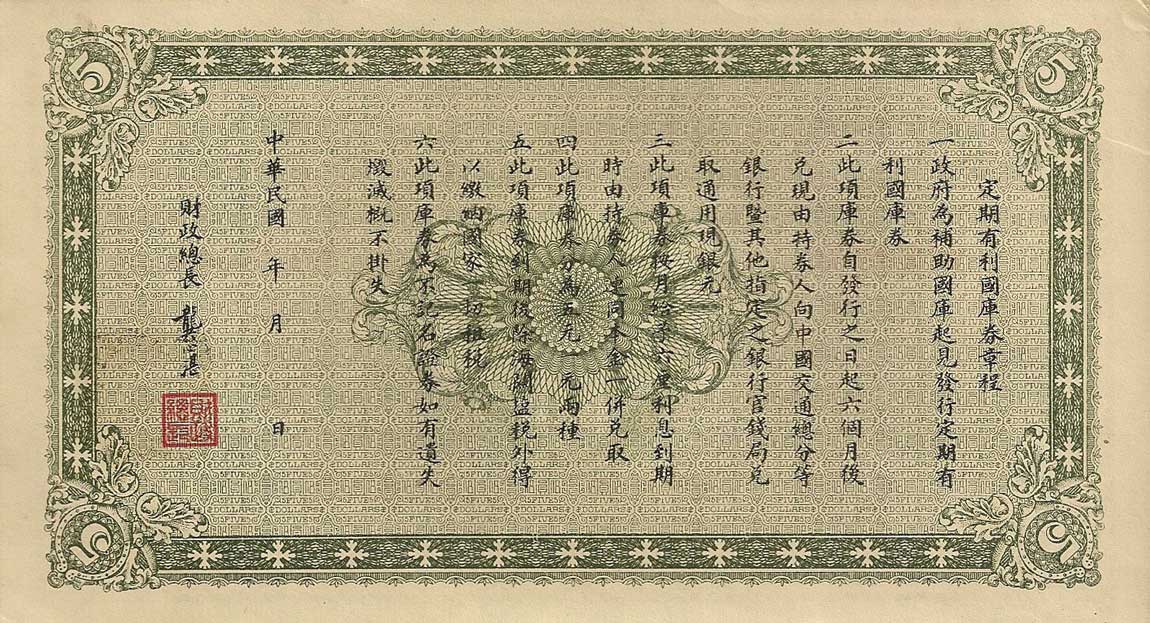 定期有利國庫券章程
一政府為補助國庫起見發行定期有
利國庫券
二此項庫券自發行之日起六個月後
兌現由持券人向中國交通總分等
銀行暨其他指定之銀行官錢局兌
取通用現銀元
三此項庫券按月給予六厘利息到期
時由持券人連同本金一併兌取
四此項庫券分為五元一元兩種
五此項庫券到期後除海關鹽稅外得
以繳納國家一切租稅
六此項庫券為不記名證券如有遺失
燬滅概不掛失
中華民國 年 月 日
財政總長
財政總長
5
5
5
5
FIVE DOLLARS